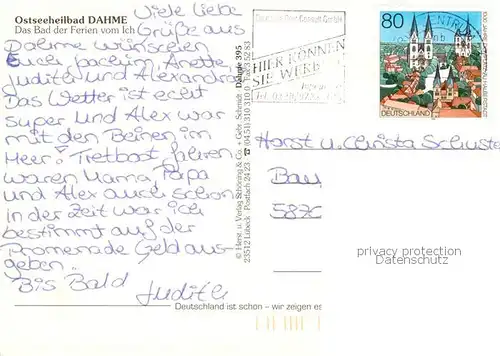 Ostseeheilbad DAHME
Das Bad der Ferien vom Ich
Viele liebe
Grüße aus
Dahme wünschen
Euch Joachim, Anette,
Judith und Alexandra
Das Wetter ist echt
super und Alex war
mit den Beinen im
Meer! Tretboot fahren
waren Mama, Papa
und Alex auch schon
in der Zeit war ich
bestimmt auf der
Promenade Geld aus-
geben.
Bis Bald
Judith
Deutschland ist schön – wir zeigen es
© Herst. u. Verlag Schöning & Co. + Gebr. Schmidt Dahme 395
23512 Lübeck Postfach 24 23 ☎ (0451) 310 310
HIER KÖNNEN
SIE WERB
80
DEUTSCHLAND
Horst u. Christa Schuste
Bau
587
privacy protection
Datenschutz